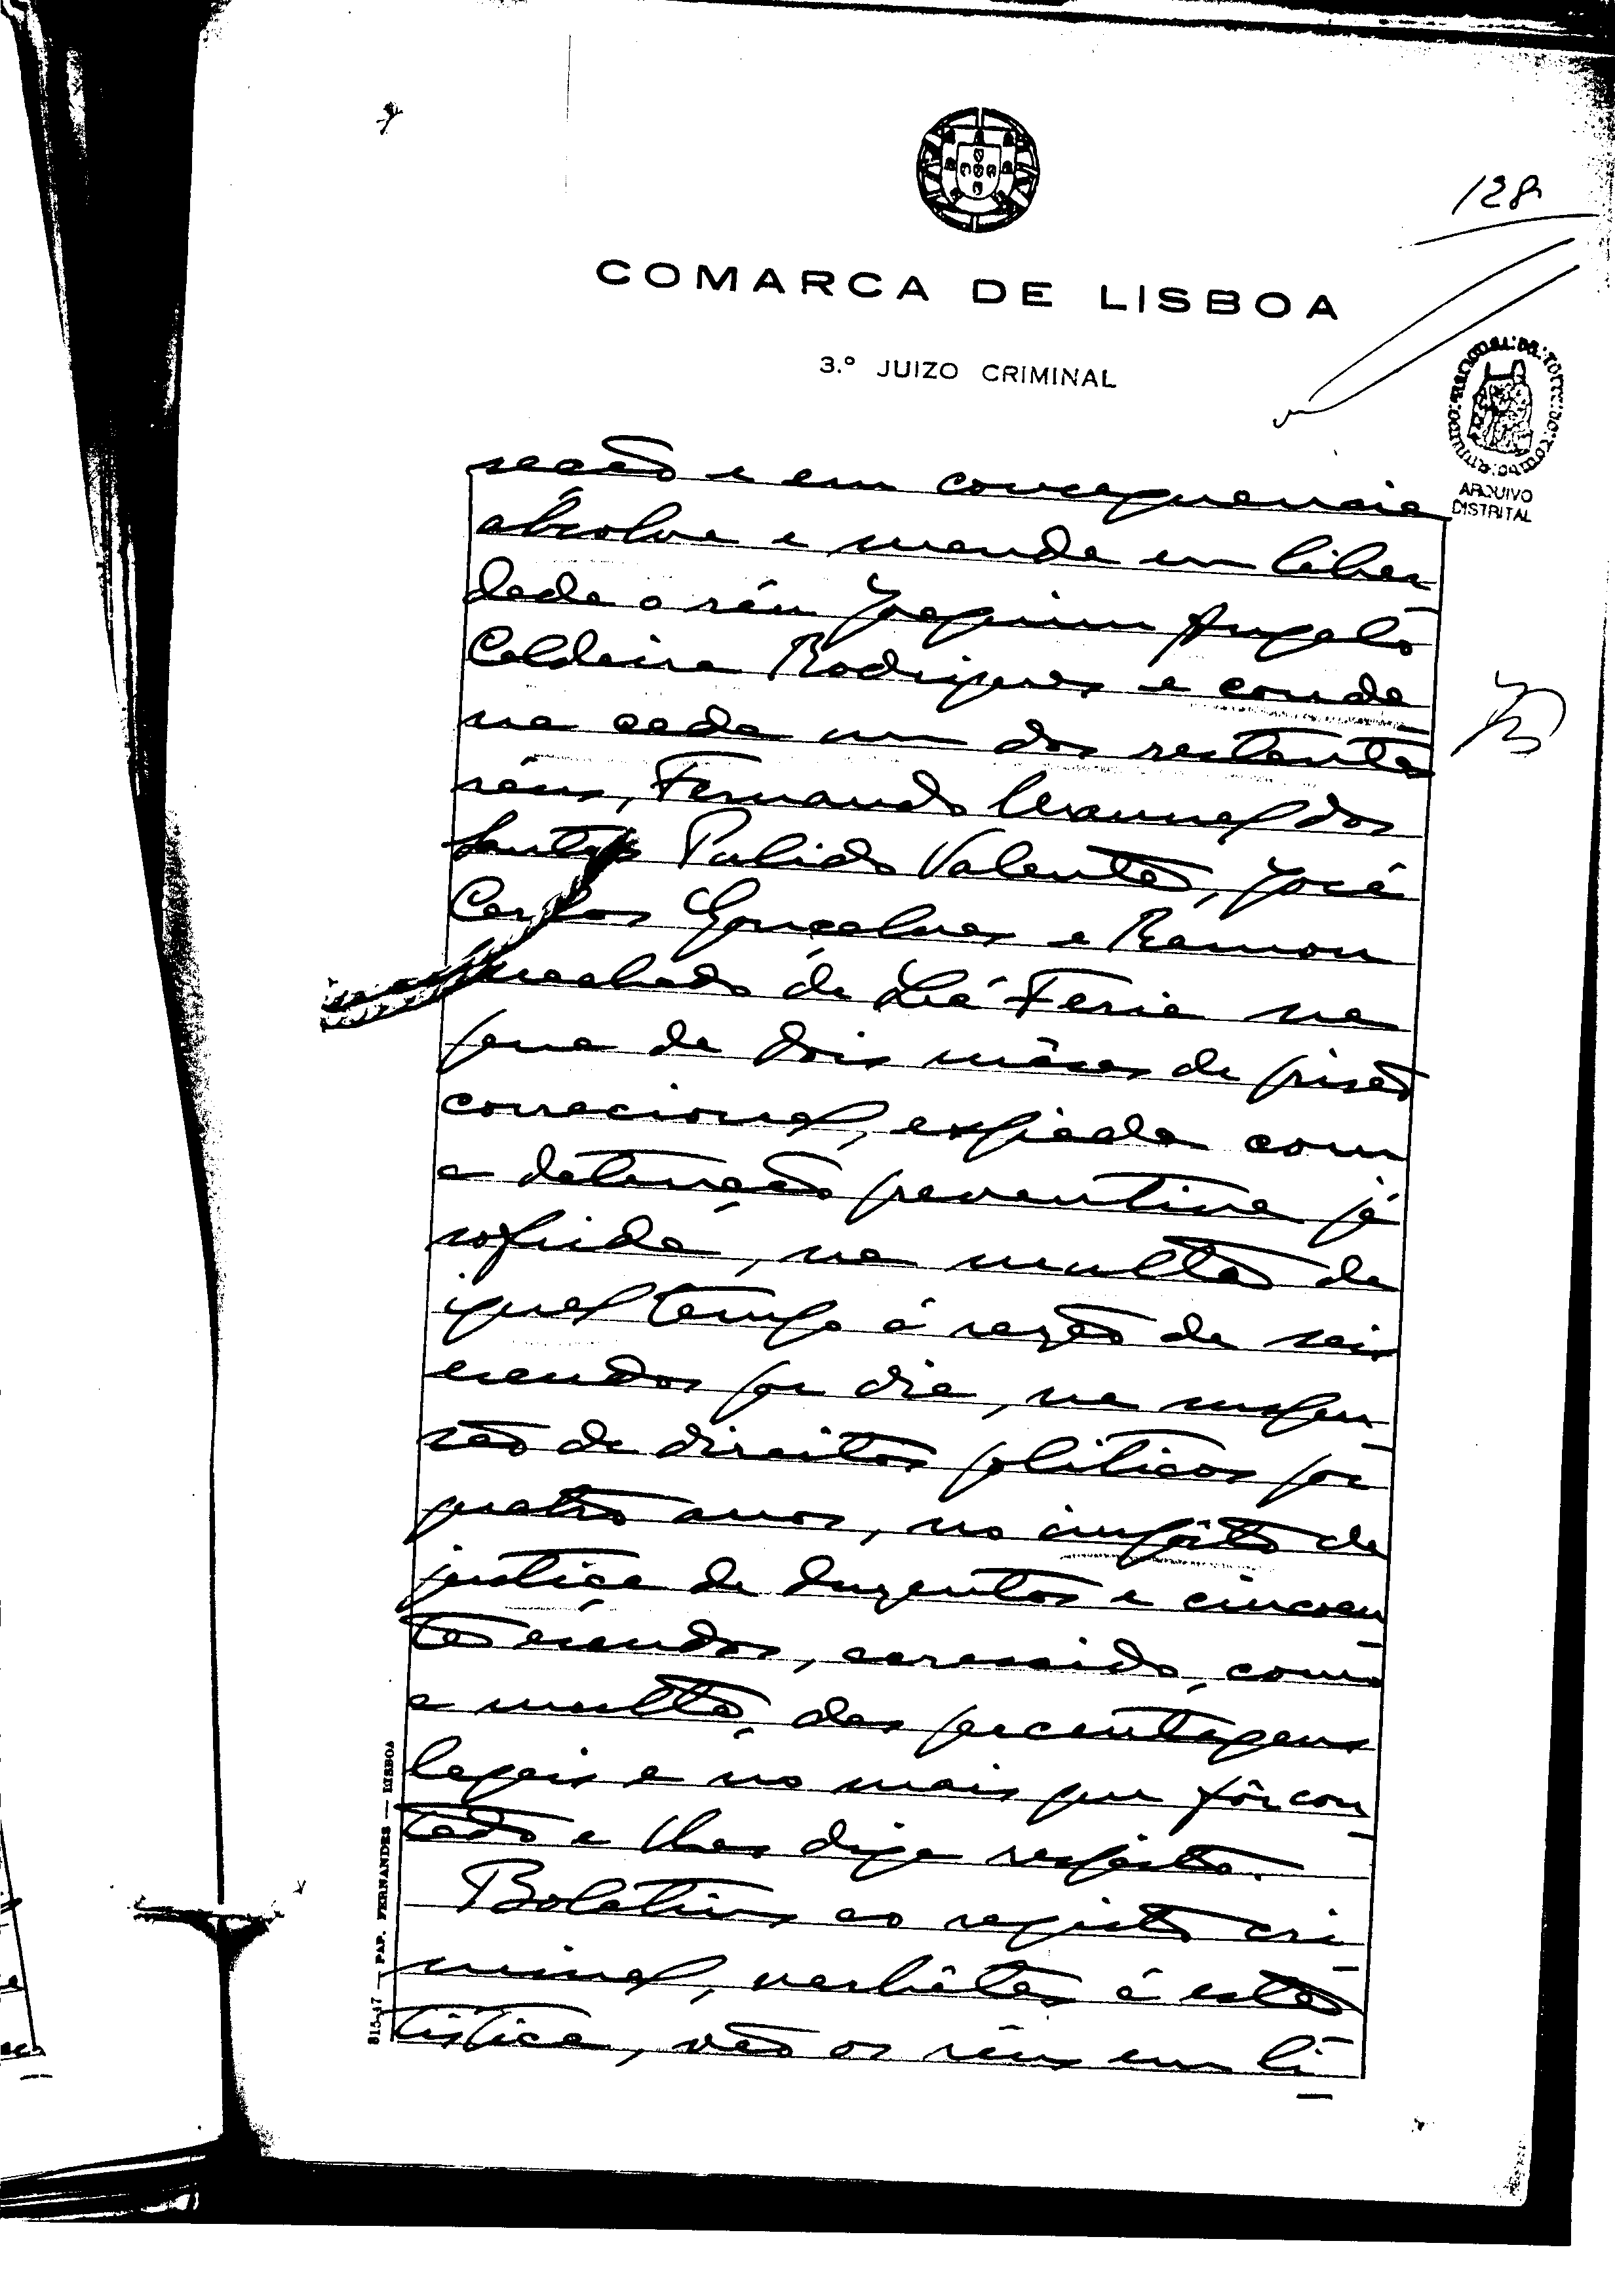 128
COMARCA DE LISBOA
3.º JUIZO CRIMINAL
ARQUIVO
DISTRITAL
e em consequencia
absolve e manda em liber
dade o réu Joaquim Angelo
Caldeira Rodrigues e conde
na cada um dos restantes
réus, Fernando Manuel dos
Santos Pulido Valente, José
Carlos Gonçalves e Ramon
Machado de Lá Feria na
pena de dois mêses de prisão
correcional, expiada com
a detenção preventiva já
sofrida, na multa de
igual tempo á razão de seis
escudos por dia, na suspen
são de direitos politicos por
quatro anos, no impôsto de
justiça de duzentos e cincoen
ta escudos, acrescido, com
a multa, das percentagens
legais e no mais que fôr con
tado e lhes diga respeito.
Boletins ao registo cri
minal, verbêtes á esta
tistica, vão os réus em li
815-47 — PAP. FERNANDES — LISBOA